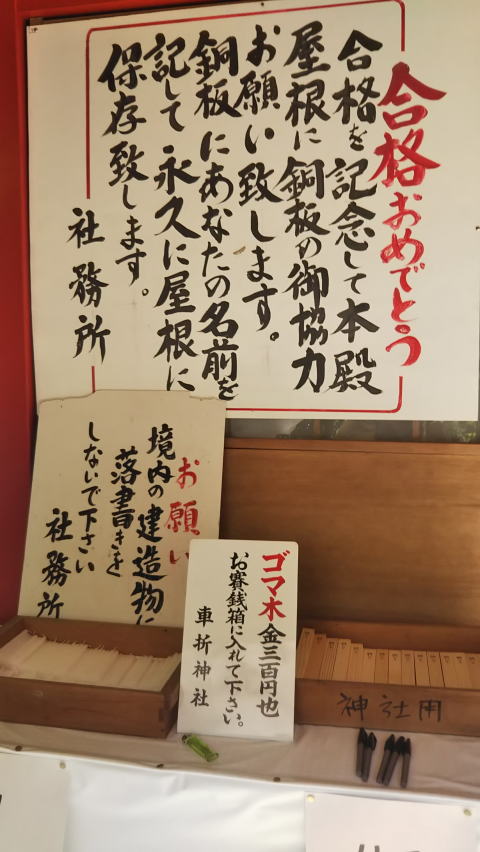 合格おめでとう
合格を記念して本殿
屋根に銅板の御協力
お願い致します。
銅板にあなたの名前を
記して永久に屋根に
保存致します。
社務所
お願い
境内の建造物に
落書きを
しないで下さい
社務所
ゴマ木金三百円也
お賽銭箱に入れて下さい。
車折神社
神社用